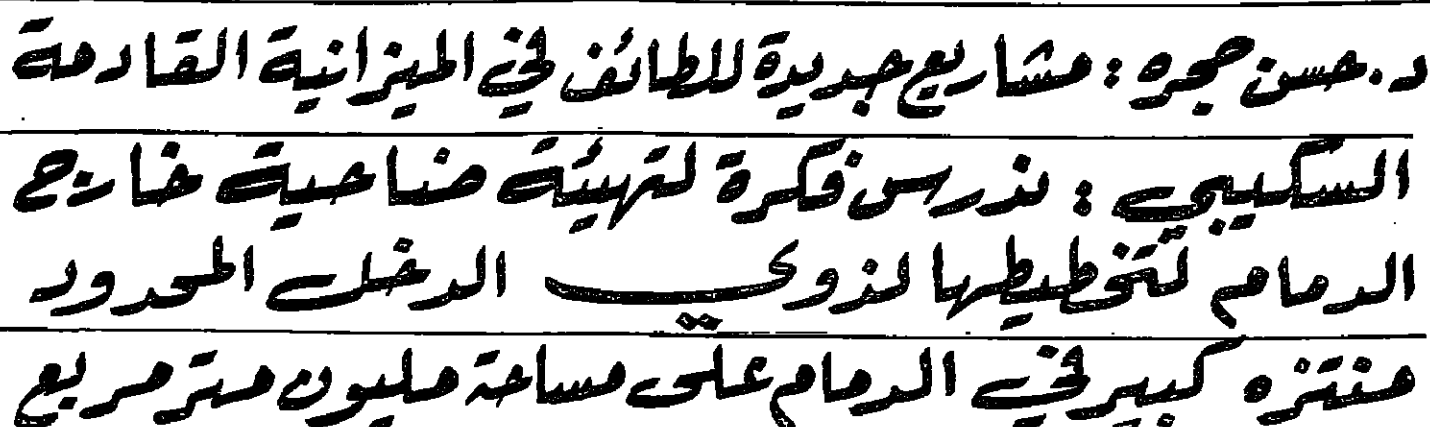 د. حسن حجره : مشاريع جديدة للطائف في الميزانية القادمة
السكيبي : ندرس فكرة لتهيئة ضاحية خارج
الدمام لتخطيطها لذوي الدخل المحدود
منتزه كبير في الدمام على مساحة مليون متر مربع